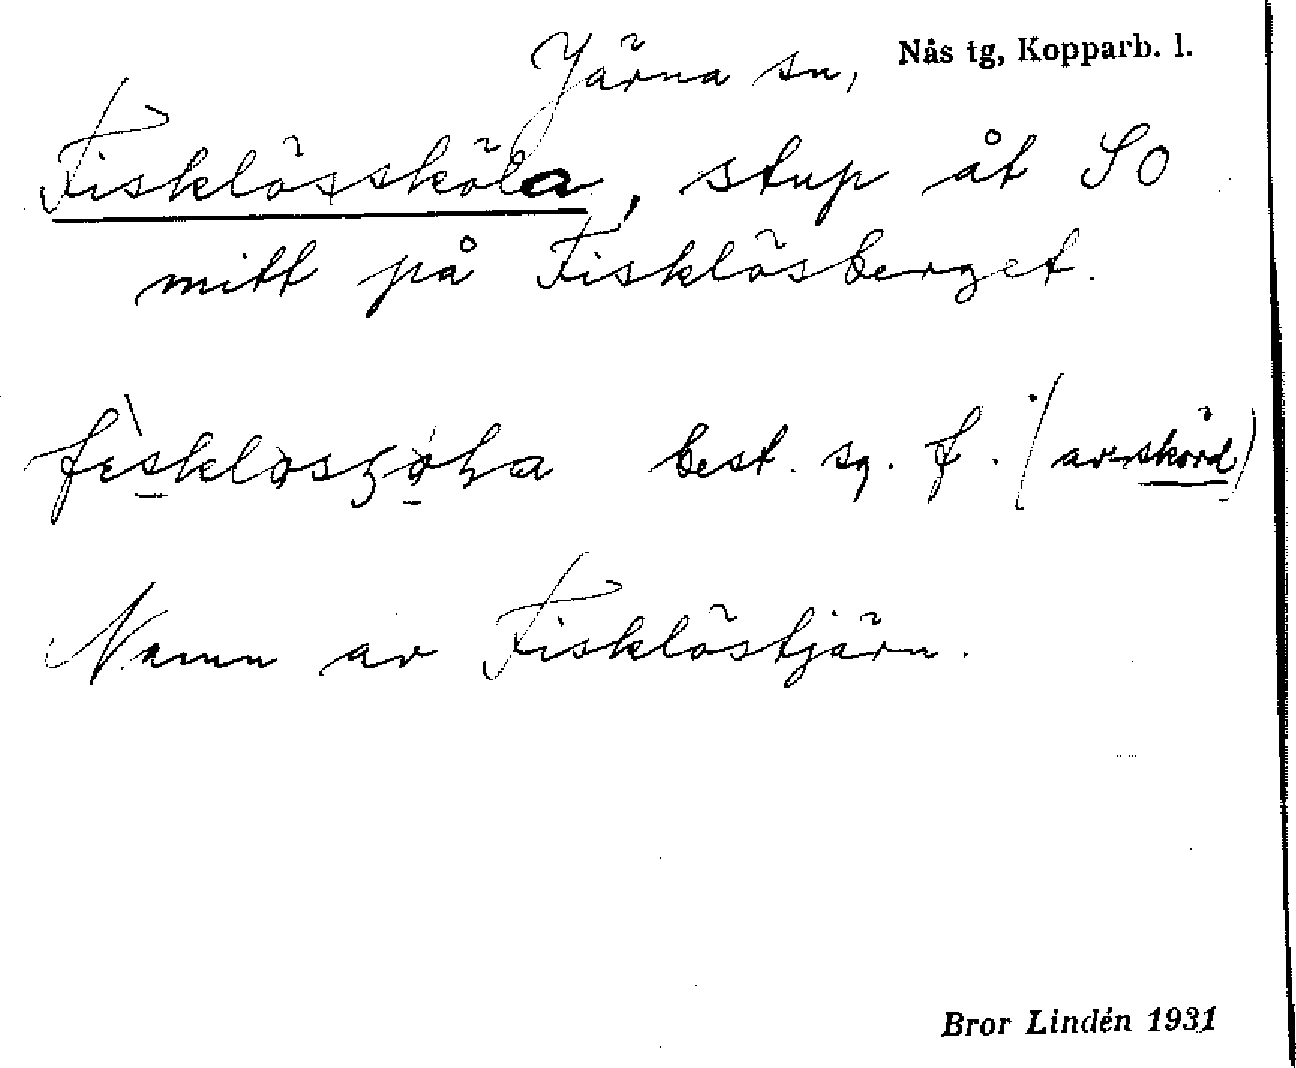 Järna sn, Nås tg, Kopparb. l.
Fisklössköla, stup åt SO
mitt på Fisklösberget.
best. sg. f. (av skörd)
Namn av Fisklöstjärn.
Bror Lindén 1931